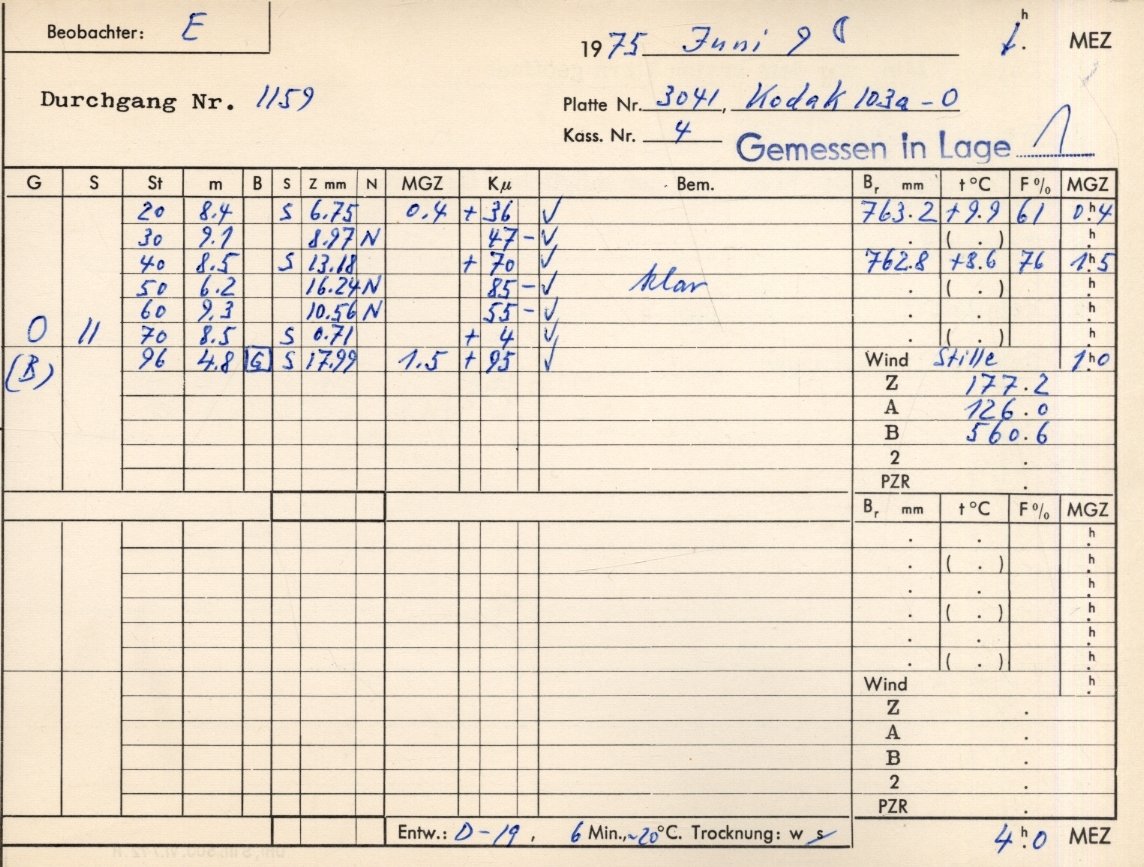 Beobachter: E
1975 Juni 9 h MEZ
Durchgang Nr. 1159
Platte Nr. 3041, Kodak 103a-O
Kass. Nr. 4
Gemessen in Lage 1
G S St m B S Z mm N MGZ Kμ Bem. Br mm t °C F % MGZ
20 8.4 S 6.75 0.4 + 36 √ 763.2 +9.9 61 0.h4
30 9.1 8.97 N 47 - √ . ( . ) .h
40 8.5 S 13.18 + 70 √ 762.8 +8.6 76 1.h5
50 6.2 16.24 N 85 - √ klar . ( . ) .h
60 9.3 10.56 N 55 - √ . . .h
O 11 70 8.5 S 0.71 + 4 √ . ( . ) .h
(B) 96 4.8 G S 17.99 1.5 + 95 √ Wind Stille 1.h0
Z 177.2
A 126.0
B 560.6
2 .
PZR .
Br mm t °C F % MGZ
. . .h
. ( . ) .h
. . .h
. ( . ) .h
. . .h
. ( . ) .h
Wind .h
Z .
A .
B .
2 .
PZR .
Entw.: D-19, 6 Min., ~20°C. Trocknung: w s
4.h0 MEZ